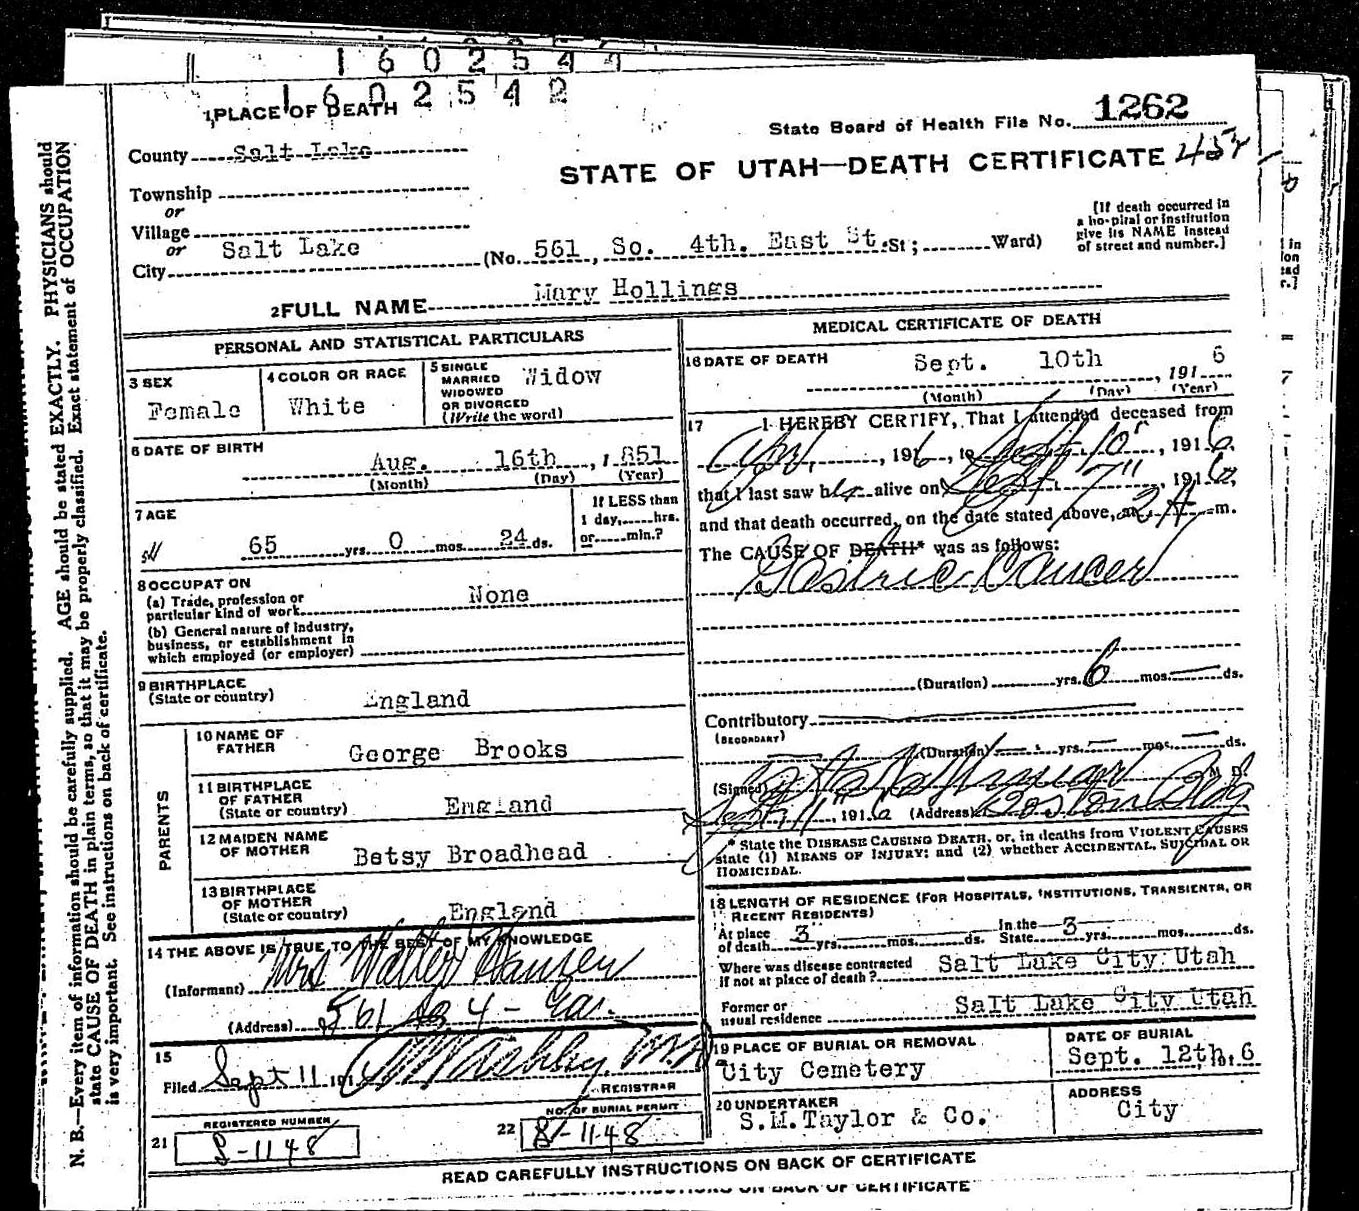 1602544
1602542
1 PLACE OF DEATH
State Board of Health File No. 1262
County Salt Lake
STATE OF UTAH—DEATH CERTIFICATE
Township
or
Village
or
City Salt Lake (No. 561, So. 4th. East St. St; Ward)
[If death occurred in
a hospital or institution
give its NAME instead
of street and number.]
2 FULL NAME Mary Hollings
PERSONAL AND STATISTICAL PARTICULARS
3 SEX
Female
4 COLOR OR RACE
White
5 SINGLE
MARRIED
WIDOWED
OR DIVORCED
(Write the word)
Widow
6 DATE OF BIRTH
Aug. 16th, 1851
(Month) (Day) (Year)
7 AGE
65 yrs. 0 mos. 24 ds.
If LESS than
1 day, hrs.
or min.?
8 OCCUPATION
(a) Trade, profession or
particular kind of work None
(b) General nature of industry,
business, or establishment in
which employed (or employer)
9 BIRTHPLACE
(State or country) England
PARENTS
10 NAME OF
FATHER George Brooks
11 BIRTHPLACE
OF FATHER
(State or country) England
12 MAIDEN NAME
OF MOTHER Betsy Broadhead
13 BIRTHPLACE
OF MOTHER
(State or country) England
14 THE ABOVE IS TRUE TO THE BEST OF MY KNOWLEDGE
(Informant) Mrs Walter Hansen
(Address) 561 So 4 - Eas.
15
Filed Sept 11 191
REGISTRAR
REGISTERED NUMBER
21 S-1148
NO. OF BURIAL PERMIT
22 S-1148
MEDICAL CERTIFICATE OF DEATH
16 DATE OF DEATH Sept. 10th, 1916
(Month) (Day) (Year)
17 I HEREBY CERTIFY, That I attended deceased from
Apr, 1916, to Sept 10", 1916,
that I last saw her alive on Sept 7", 1916,
and that death occurred, on the date stated above, at 2 A m.
The CAUSE OF DEATH* was as follows:
Gastric Cancer
(Duration) yrs. 6 mos. — ds.
Contributory
(SECONDARY)
(Duration) — yrs. — mos. — ds.
(Signed) M. D.
Sept 11", 1916 (Address) Boston Bldg
* State the DISEASE CAUSING DEATH, or, in deaths from VIOLENT CAUSES
state (1) MEANS OF INJURY; and (2) whether ACCIDENTAL, SUICIDAL OR
HOMICIDAL.
18 LENGTH OF RESIDENCE (FOR HOSPITALS, INSTITUTIONS, TRANSIENTS, OR
RECENT RESIDENTS)
At place
of death 3 yrs. mos. ds. In the
State 3 yrs. mos. ds.
Where was disease contracted
if not at place of death? Salt Lake City Utah
Former or
usual residence Salt Lake City Utah
19 PLACE OF BURIAL OR REMOVAL
City Cemetery
DATE OF BURIAL
Sept. 12th, 6
20 UNDERTAKER
S.M.Taylor & Co.
ADDRESS
City
READ CAREFULLY INSTRUCTIONS ON BACK OF CERTIFICATE
ON BACK OF CERTIFICATE
N. B.—Every item of information should be carefully supplied. AGE should be stated EXACTLY. PHYSICIANS should
state CAUSE OF DEATH in plain terms, so that it may be properly classified. Exact statement of OCCUPATION
is very important. See instructions on back of certificate.